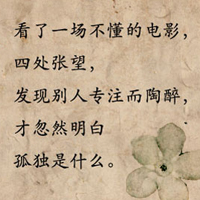 看了一场不懂的电影，
四处张望，
发现别人专注而陶醉，
才忽然明白
孤独是什么。